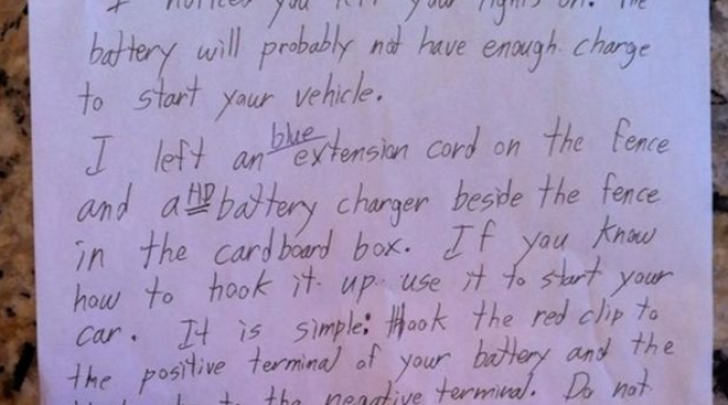 I noticed you left your lights on. The
battery will probably not have enough charge
to start your vehicle.
I left an blue extension cord on the fence
and a HD battery charger beside the fence
in the cardboard box. If you know
how to hook it up use it to start your
car. It is simple: Hook the red clip to
the positive terminal of your battery and the
to the negative terminal. Do not